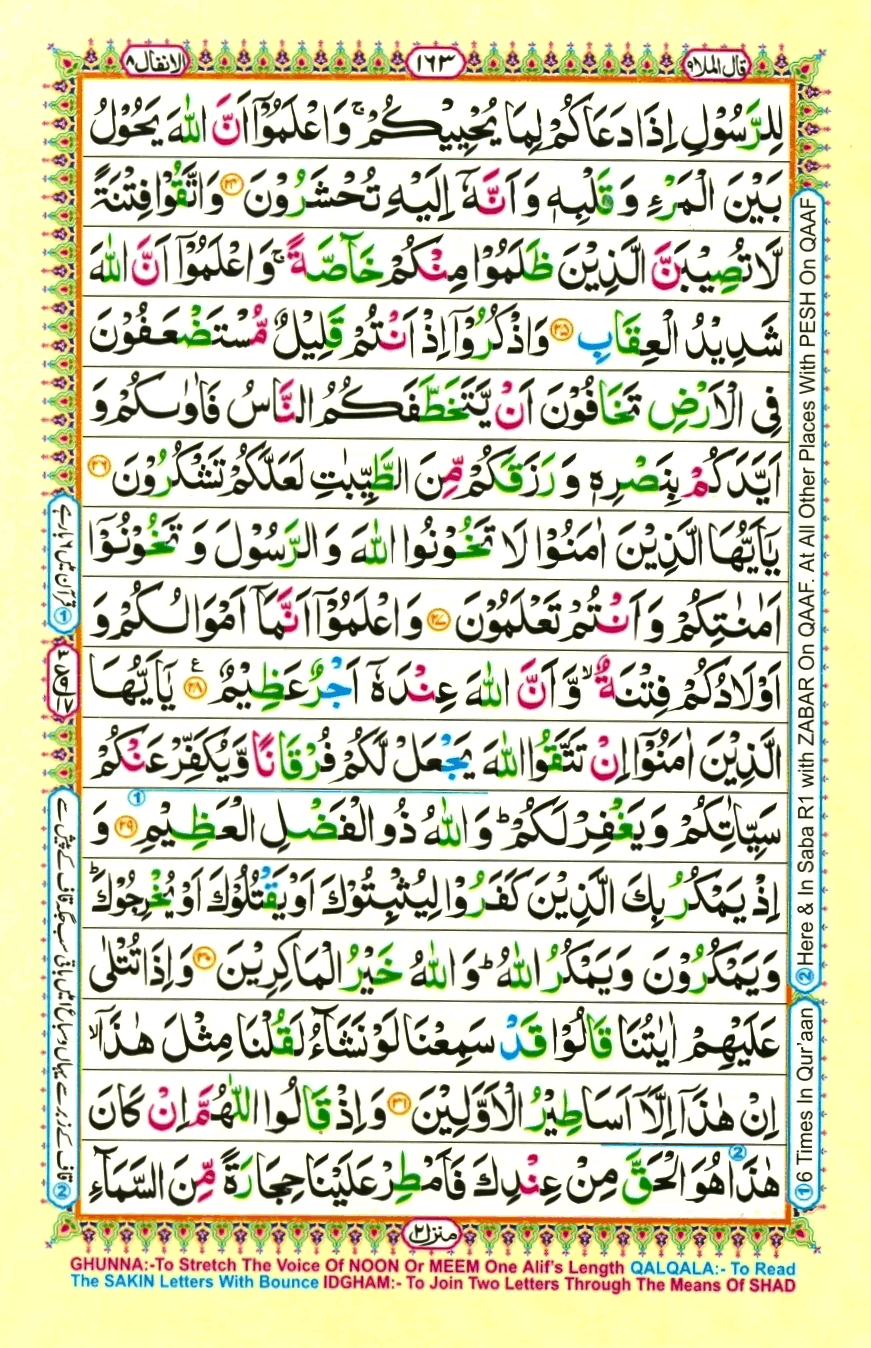 الانفال ۸
۱۶۳
قال الملا ۹
لِلرَّسُوْلِ اِذَا دَعَاكُمْ لِمَا يُحْيِيْكُمْ ۚ وَاعْلَمُوْۤا اَنَّ اللّٰهَ يَحُوْلُ
بَيْنَ الْمَرْءِ وَقَلْبِهٖ وَاَنَّهٗۤ اِلَيْهِ تُحْشَرُوْنَ ﴿۲۴﴾ وَاتَّقُوْا فِتْنَةً
لَّا تُصِيْبَنَّ الَّذِيْنَ ظَلَمُوْا مِنْكُمْ خَآصَّةً ۚ وَاعْلَمُوْۤا اَنَّ اللّٰهَ
شَدِيْدُ الْعِقَابِ ﴿۲۵﴾ وَاذْكُرُوْۤا اِذْ اَنْتُمْ قَلِيْلٌ مُّسْتَضْعَفُوْنَ
فِى الْاَرْضِ تَخَافُوْنَ اَنْ يَّتَخَطَّفَكُمُ النَّاسُ فَاٰوٰىكُمْ وَ
اَيَّدَكُمْ بِنَصْرِهٖ وَرَزَقَكُمْ مِّنَ الطَّيِّبٰتِ لَعَلَّكُمْ تَشْكُرُوْنَ ﴿۲۶﴾
يٰۤاَيُّهَا الَّذِيْنَ اٰمَنُوْا لَا تَخُوْنُوا اللّٰهَ وَالرَّسُوْلَ وَ تَخُوْنُوْۤا
اَمٰنٰتِكُمْ وَاَنْتُمْ تَعْلَمُوْنَ ﴿۲۷﴾ وَاعْلَمُوْۤا اَنَّمَاۤ اَمْوَالُكُمْ وَ
اَوْلَادُكُمْ فِتْنَةٌ ۙ وَّاَنَّ اللّٰهَ عِنْدَهٗۤ اَجْرٌ عَظِيْمٌ ﴿۲۸﴾ ع يٰۤاَيُّهَا
الَّذِيْنَ اٰمَنُوْۤا اِنْ تَتَّقُوا اللّٰهَ يَجْعَلْ لَّكُمْ فُرْقَانًا وَّيُكَفِّرْ عَنْكُمْ
سَيِّاٰتِكُمْ وَيَغْفِرْ لَكُمْ ؕ وَاللّٰهُ ذُو الْفَضْلِ الْعَظِيْمِ ﴿۲۹﴾ وَ
①
اِذْ يَمْكُرُ بِكَ الَّذِيْنَ كَفَرُوْا لِيُثْبِتُوْكَ اَوْ يَقْتُلُوْكَ اَوْ يُخْرِجُوْكَ ؕ
وَيَمْكُرُوْنَ وَيَمْكُرُ اللّٰهُ ؕ وَاللّٰهُ خَيْرُ الْمَاكِرِيْنَ ﴿۳۰﴾ وَاِذَا تُتْلٰى
عَلَيْهِمْ اٰيٰتُنَا قَالُوْا قَدْ سَمِعْنَا لَوْ نَشَآءُ لَقُلْنَا مِثْلَ هٰذَاۤ ۙ
اِنْ هٰذَاۤ اِلَّاۤ اَسَاطِيْرُ الْاَوَّلِيْنَ ﴿۳۱﴾ وَاِذْ قَالُوا اللّٰهُمَّ اِنْ كَانَ
②
هٰذَا هُوَ الْحَقَّ مِنْ عِنْدِكَ فَاَمْطِرْ عَلَيْنَا حِجَارَةً مِّنَ السَّمَآءِ
منزل ۲
① قرآن میں ۶ بار ہے
② قاف کے زبر سے یہاں و سبا ع ا میں باقی سب جگہ قاف کے پیش سے
②Here & In Saba R1 with ZABAR On QAAF. At All Other Places With PESH On QAAF
①6 Times In Qur'aan
GHUNNA:-To Stretch The Voice Of NOON Or MEEM One Alif's Length QALQALA:- To Read
The SAKIN Letters With Bounce IDGHAM:- To Join Two Letters Through The Means Of SHAD